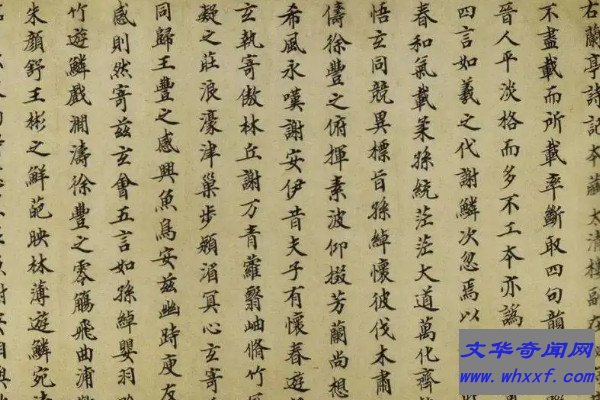 右蘭亭詩記本藏太清樓副在
不盡載而所載率斷取四句韻
晉人平淡格而多不工本亦譌
四言如羲之代謝鱗次忽焉以
春和氣載柔孫統茫茫大道萬化齊
悟玄同競異標旨孫綽懷彼伐木肅
儔徐豐之俯揮素波仰掇芳蘭尚想
希風永嘆謝安伊昔夫子有懷春遊
玄執寄傲林丘謝万青蘿翳岫脩竹
凝之莊浪濠津巢步潁湄冥心玄寄
同歸王豐之感興魚鳥安茲幽時庾友
感則然寄茲玄會五言如孫綽嬰羽吟
竹遊鱗戲澗濤徐豐之零觴飛曲浦
朱顏舒王彬之鮮葩映林薄遊鱗宛
文华奇闻网
www.whxxf.com